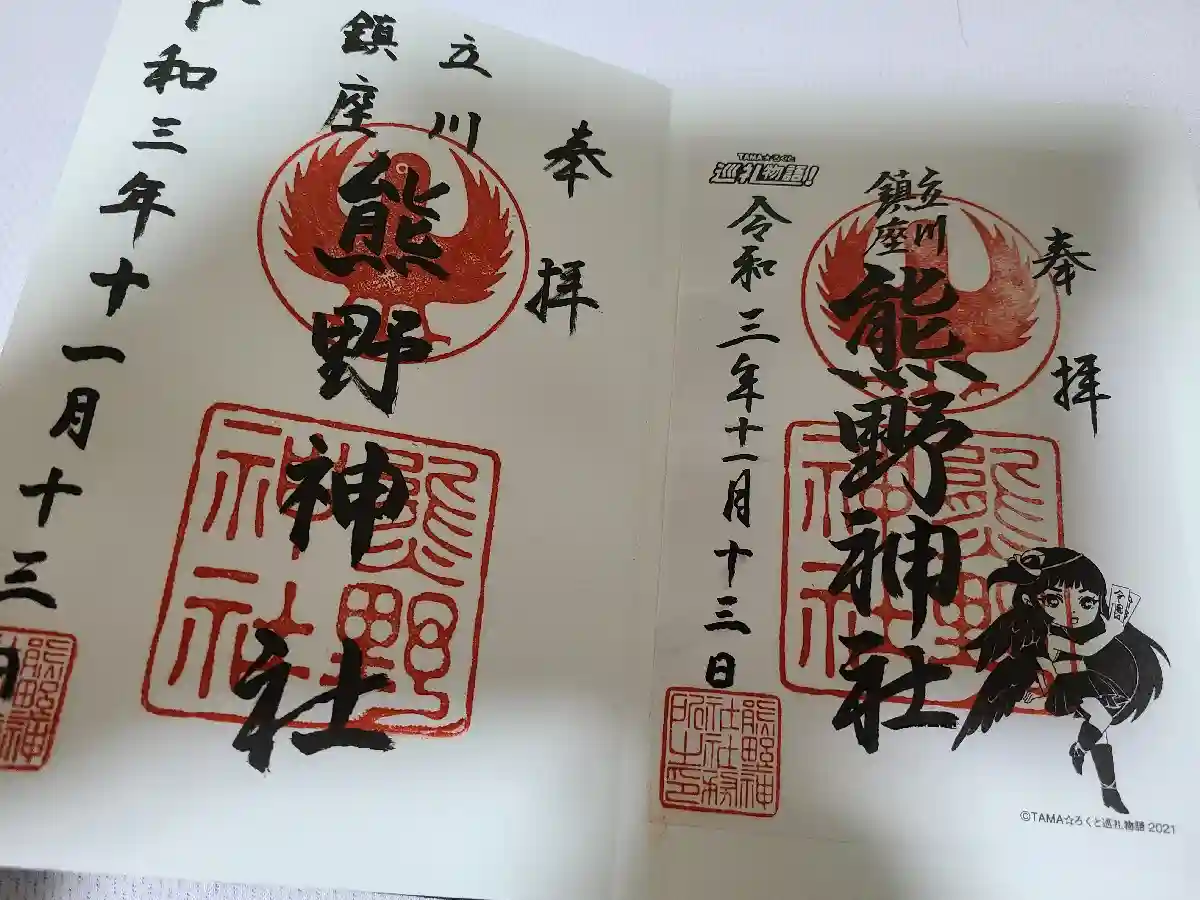 TAMA☆ろくと
巡礼物語!
奉拝
立川
鎮座
熊野神社
熊野
神社
令和三年十一月十三日
熊野神
社社務
所之印
©TAMA☆ろくと巡礼物語 2021
奉拝
立川
鎮座
熊野神社
熊野
神社
令和三年十一月十三日
熊野神